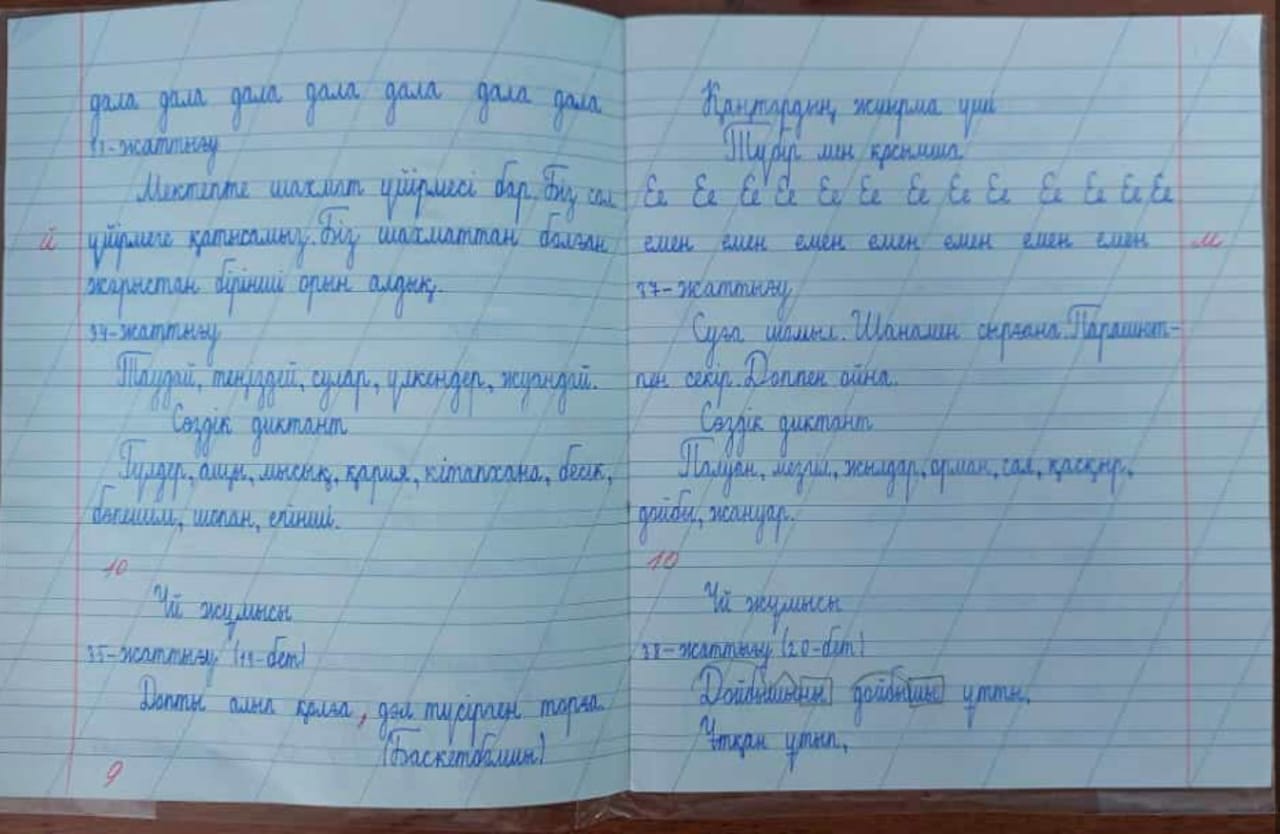 дала дала дала дала дала дала дала
33-жаттығу
Мектепте шахмат үйірмесі бар. Біз сол
й
үйірмеге қатысамыз. Біз шахматтан болған
жарыстан бірінші орын алдық.
34-жаттығу
Таудай, теңіздей, сулар, үлкендер, жуандай.
Сөздік диктант
Гүлдер, ащы, мысық, қария, кітапхана, бесік,
бөпешім, шопан, егінші.
10
Үй жұмысы
35-жаттығу (19-бет)
Допты алып қолға, дәл түсірген торға.
(Баскетболшы)
9
Қаңтардың жиырма үші
Түбір мен қосымша
Ее Ее Ее Ее Ее Ее Ее Ее Ее Ее Ее Ее Ее
емен емен емен емен емен емен емен
м
37-жаттығу
Суға шомыл. Шанамен сырғана. Парашют-
пен секір. Доппен ойна.
Сөздік диктант
Палуан, мезгіл, жылдар, орман, сал, қасқыр,
дойбы, жануар.
10
Үй жұмысы
38-жаттығу (20-бет)
Дойбышыны дойбышы ұтты,
Ұтқан ұтып,